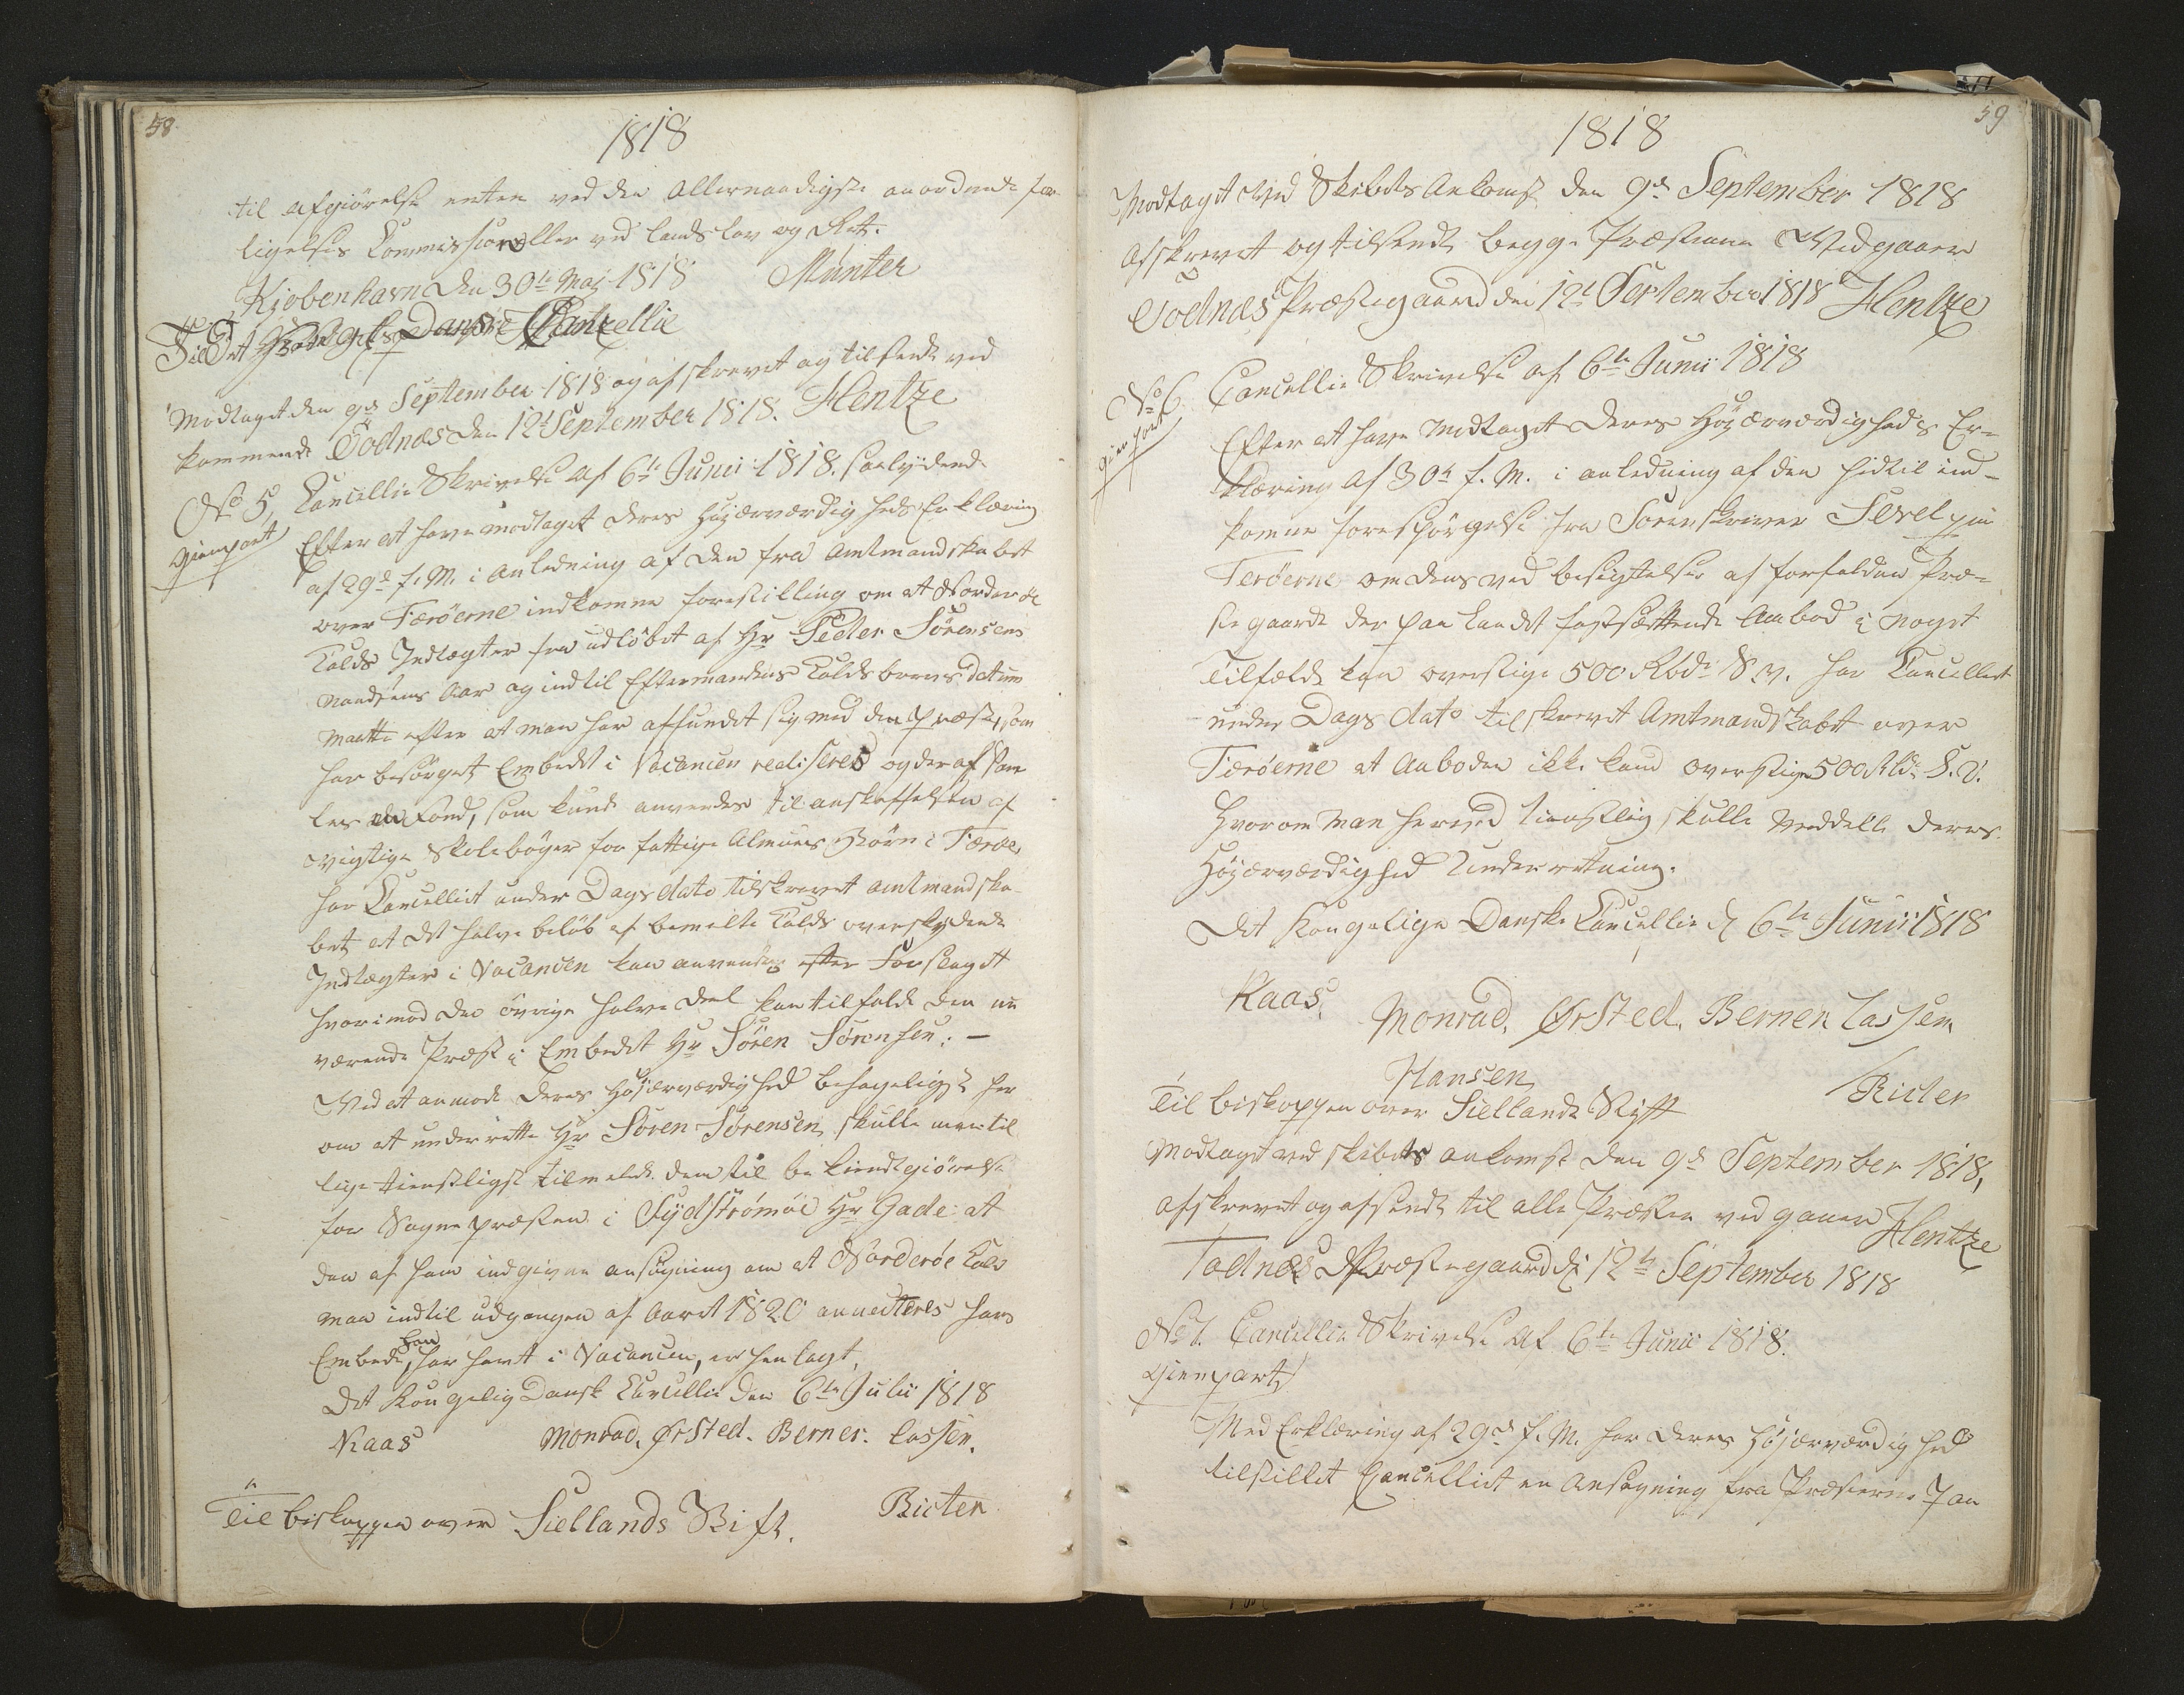 58.
1818
til Afgiørelse enten ved den Allernaadigst anordnede for-
ligelses Commission eller ved Lands Lov og Ret.
Kjøbenhavn den 30te Maj 1818 Münter
Til Det Kongelige Danske Cantzellie
Modtaget den 9de September 1818 og afskrevet og tilsendt ved
kommende Todnæs den 12te September 1818. Hentze
No 5, Cancellie Skrivelse af 6te Junii 1818. saalydende
Gienpart
Efter at have modtaget Deres Højærværdigheds Erklæring
af 29de f. M. i Anledning af den fra Amtmandskabet
over Færöerne indkomne forestilling om at Norderøe
Kalds Indtægter fra udløbet af Hr Peder Sörensens
Naadsens Aar og indtil Eftermandens Kaldsbrevs datum
maatte efter at man har affundet sig med den Præst, som
har besørget Embedet i Vacancen realiseres og deraf sam
les en Fond, som kunde anvendes til anskaffelsen af
vigtige Skolebøger for fattige Almues Børn i Færøe,
har Cancelliet under Dags dato tilskrevet Amtmandska-
bet at det halve beløb af bemelte Kalds overskydende
Indtægter i Vacancen kan anvendes efter Forslaget
hvorimod den övrige halve Deel kan tilfalde den nu
værende Præst i Embedet Hr Sören Sörensen. —
Ved at anmode Deres Højærværdighed behageligst her
om at underrette Hr Sören Sörensen, skulle man til
lige tienstligst tilmelde dem til bekiendtgiörelse
for Sognepræsten i Sydströmöe Hr Gade at
den af ham indgivne ansøgning om at Norderöe Kald
maa indtil udgangen af Aaret 1820 annecteres hans
Embede, han har havt i Vacancen, er henlagt.
Det Kongelig Dansk Cancellie den 6te Julii 1818
Kaas Monrad. Ørsted. Berner. Lassen.
Til biskoppen over Siellands Stift. Ricter
59
1818
Modtaget ved Skibets Ankomst den 9de September 1818
Afskrevet og tilsendt begge Præsterne Vidgaaer
Todnæs Præstegaard den 12te September 1818 Hentze
No 6. Cancellie Skrivelse af 6te Junii 1818
Gienpart
Efter at have Modtaget Deres Højærværdigheds Er-
klæring af 30te f. M. i anledning af den hidtil ind-
komne forespörgelse fra Sorenskriver Sevel paa
Ferøerne om dens ved besigtelse af forfaldne Præ-
stegaarde der paa Landet fastsættende Aabod i noget
Tilfælde kan overstige 500 Rbdr S.V. har Cancelliet
under Dags dato tilskrevet Amtmandskabet over
Færøerne at Aaboden ikke kand overstige 500 Rbdr S.V.
Hvorom Man herved tienstligst skulle Meddelle Deres
Højærværdighed Underretning.
Det Kongelige Danske Cancellie d 6te Junii 1818
Kaas. Monrad. Ørsted. Berner. Lassen
Hansen
Til biskoppen over Siellands Stift Ricter
Modtaget ved Skibets ankomst den 9de September 1818,
afskrevet og afsendt til alle Præster vidgaaer Hentze
Todnæs Præstegaard d 12te September 1818
No 7. Cancellie Skrivelse af 6te Junii 1818.
Gienpart
Med Erklæring af 29de f. M. har Deres Højærværdighed
tilstillet Cancelliet en Ansøgning fra Præsterne Paa